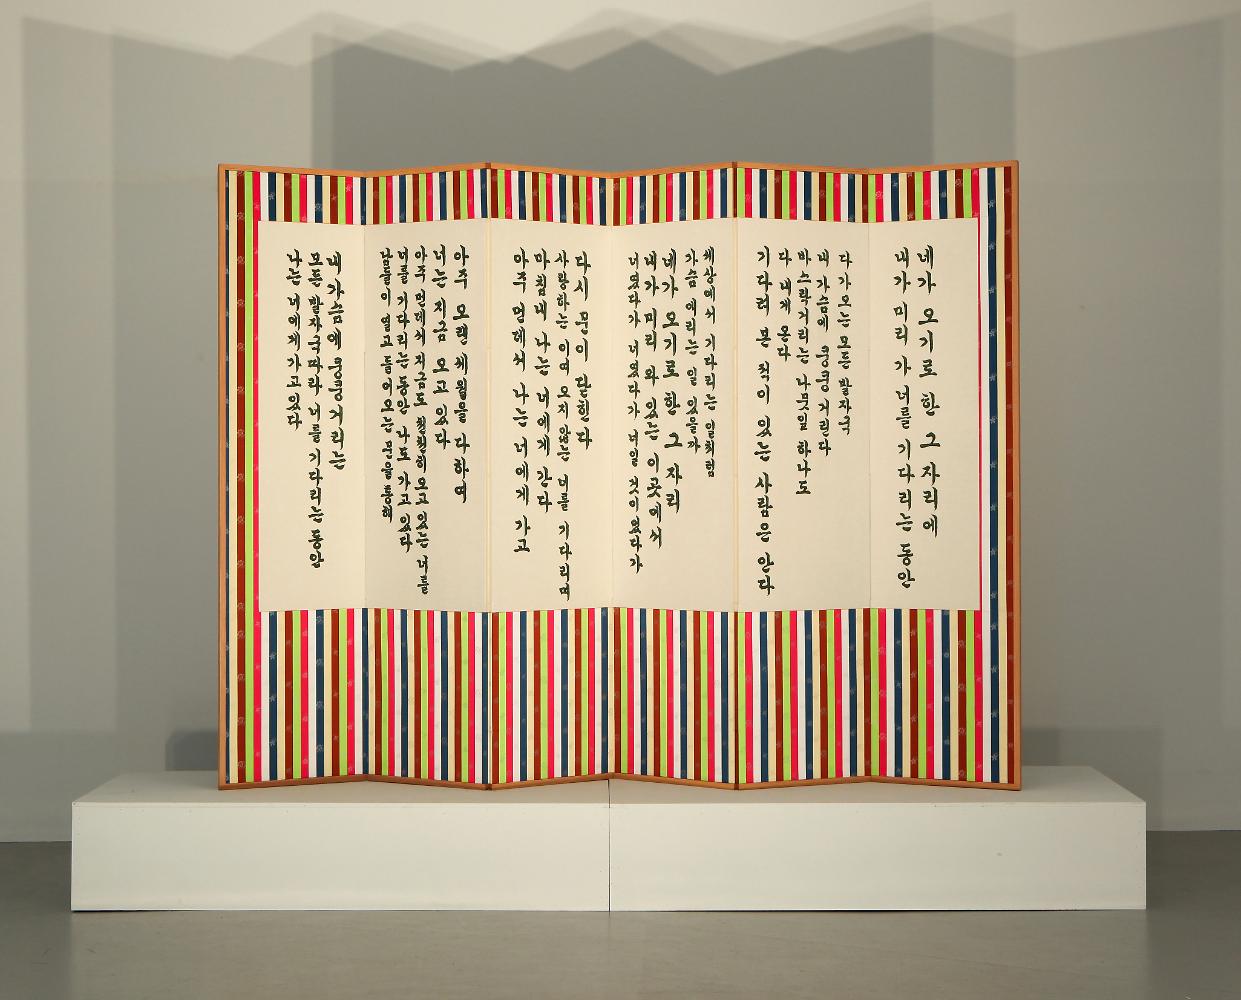 네가 오기로 한 그 자리에
내가 미리 가 너를 기다리는 동안
다가오는 모든 발자국
내 가슴에 쿵쿵거린다
바스락거리는 나뭇잎 하나도
다 내게 온다
기다려 본 적이 있는 사람은 안다
세상에서 기다리는 일처럼
가슴 에리는 일 있을까
네가 오기로 한 그 자리
내가 미리 와 있는 이곳에서
너였다가 너였다가 너일 것이었다가
다시 문이 닫힌다
사랑하는 이여 오지 않는 너를 기다리며
마침내 나는 너에게 간다
아주 먼데서 나는 너에게 가고
아주 오랜 세월을 다하여
너는 지금 오고 있다
아주 먼데서 지금도 천천히 오고 있는 너를
너를 기다리는 동안 나도 가고 있다
남들이 열고 들어오는 문을 통해
내 가슴에 쿵쿵거리는
모든 발자국 따라 너를 기다리는 동안
나는 너에게 가고 있다